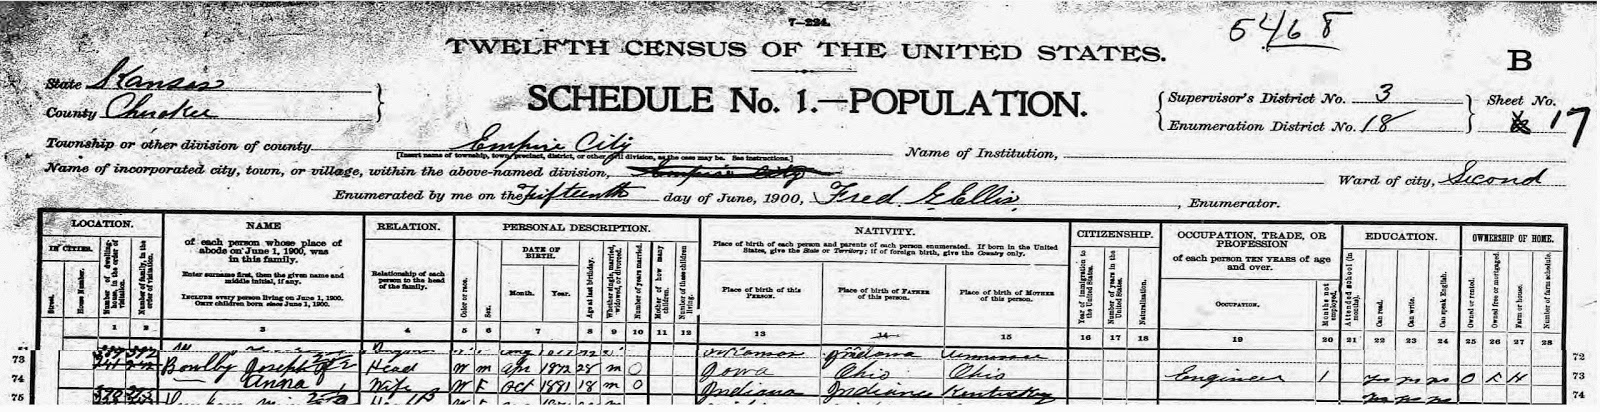 7—224.
5468
TWELFTH CENSUS OF THE UNITED STATES.
B
State Kansas
County Cherokee
SCHEDULE No. 1.—POPULATION.
Supervisor's District No. 3
Enumeration District No. 18
Sheet No.
17
Township or other division of county Empire City
[Insert name of township, town, precinct, district, or other civil division, as the case may be. See instructions.]
Name of Institution,
Name of incorporated city, town, or village, within the above-named division, Empire City
Ward of city, Second
Enumerated by me on the Fifteenth day of June, 1900, Fred G Ellis, Enumerator.
LOCATION.
IN CITIES.
Street.
House Number.
Number of dwelling-house, in the order of visitation.
Number of family, in the order of visitation.
NAME
of each person whose place of
abode on June 1, 1900, was
in this family.
Enter surname first, then the given name and
middle initial, if any.
INCLUDE every person living on June 1, 1900.
OMIT children born since June 1, 1900.
RELATION.
Relationship of each
person to the head
of the family.
PERSONAL DESCRIPTION.
Color or race.
Sex.
DATE OF
BIRTH.
Month.
Year.
Age at last birthday.
Whether single, married, widowed, or divorced.
Number of years married.
Mother of how many children.
Number of these children living.
NATIVITY.
Place of birth of each person and parents of each person enumerated. If born in the United
States, give the State or Territory; if of foreign birth, give the Country only.
Place of birth of this
PERSON.
Place of birth of FATHER
of this person.
Place of birth of MOTHER
of this person.
CITIZENSHIP.
Year of immigration to the United States.
Number of years in the United States.
Naturalization.
OCCUPATION, TRADE, OR
PROFESSION
of each person TEN YEARS of age
and over.
OCCUPATION.
Months not employed.
EDUCATION.
Attended school (in months).
Can read.
Can write.
Can speak English.
OWNERSHIP OF HOME.
Owned or rented.
Owned free or mortgaged.
Farm or house.
Number of farm schedule.
1 2 3 4 5 6 7 8 9 10 11 12 13 14 15 16 17 18 19 20 21 22 23 24 25 26 27 28
Indiana 72
73 Bowlby Joseph Head W M Apr 1872 28 M 0 Iowa Ohio Ohio Engineer 1 yes yes yes 73
74 Anna Wife W F Oct 1881 18 M 0 Indiana Indiana Kentucky yes yes yes 74
75